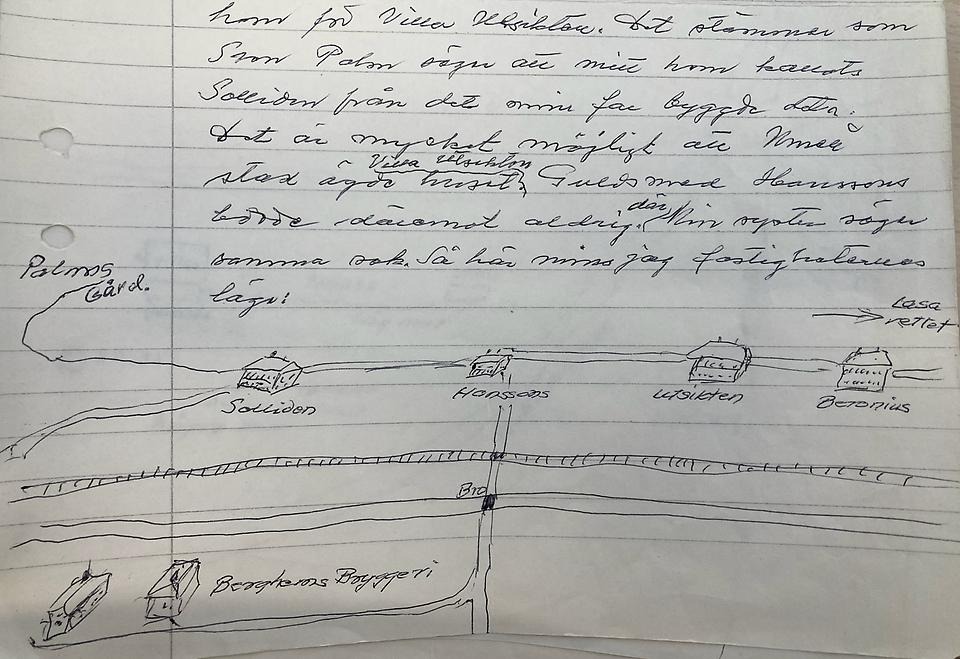 hem för Villa Utsikten. Det stämmer som
Sven Palm säger att mitt hem kallats
Solliden från det min far byggde det.
Det är mycket möjligt att
ägde huset Villa Utsikten, Guldsmed Hanssons
bodde däremot aldrig där. Min syster säger
samma sak. Så här minns jag fastigheternas
läge:
Palms
Gård.
Lasa
rettet
Solliden
Hanssons
Utsikten
Beronius
Bro
Berghems Bryggeri